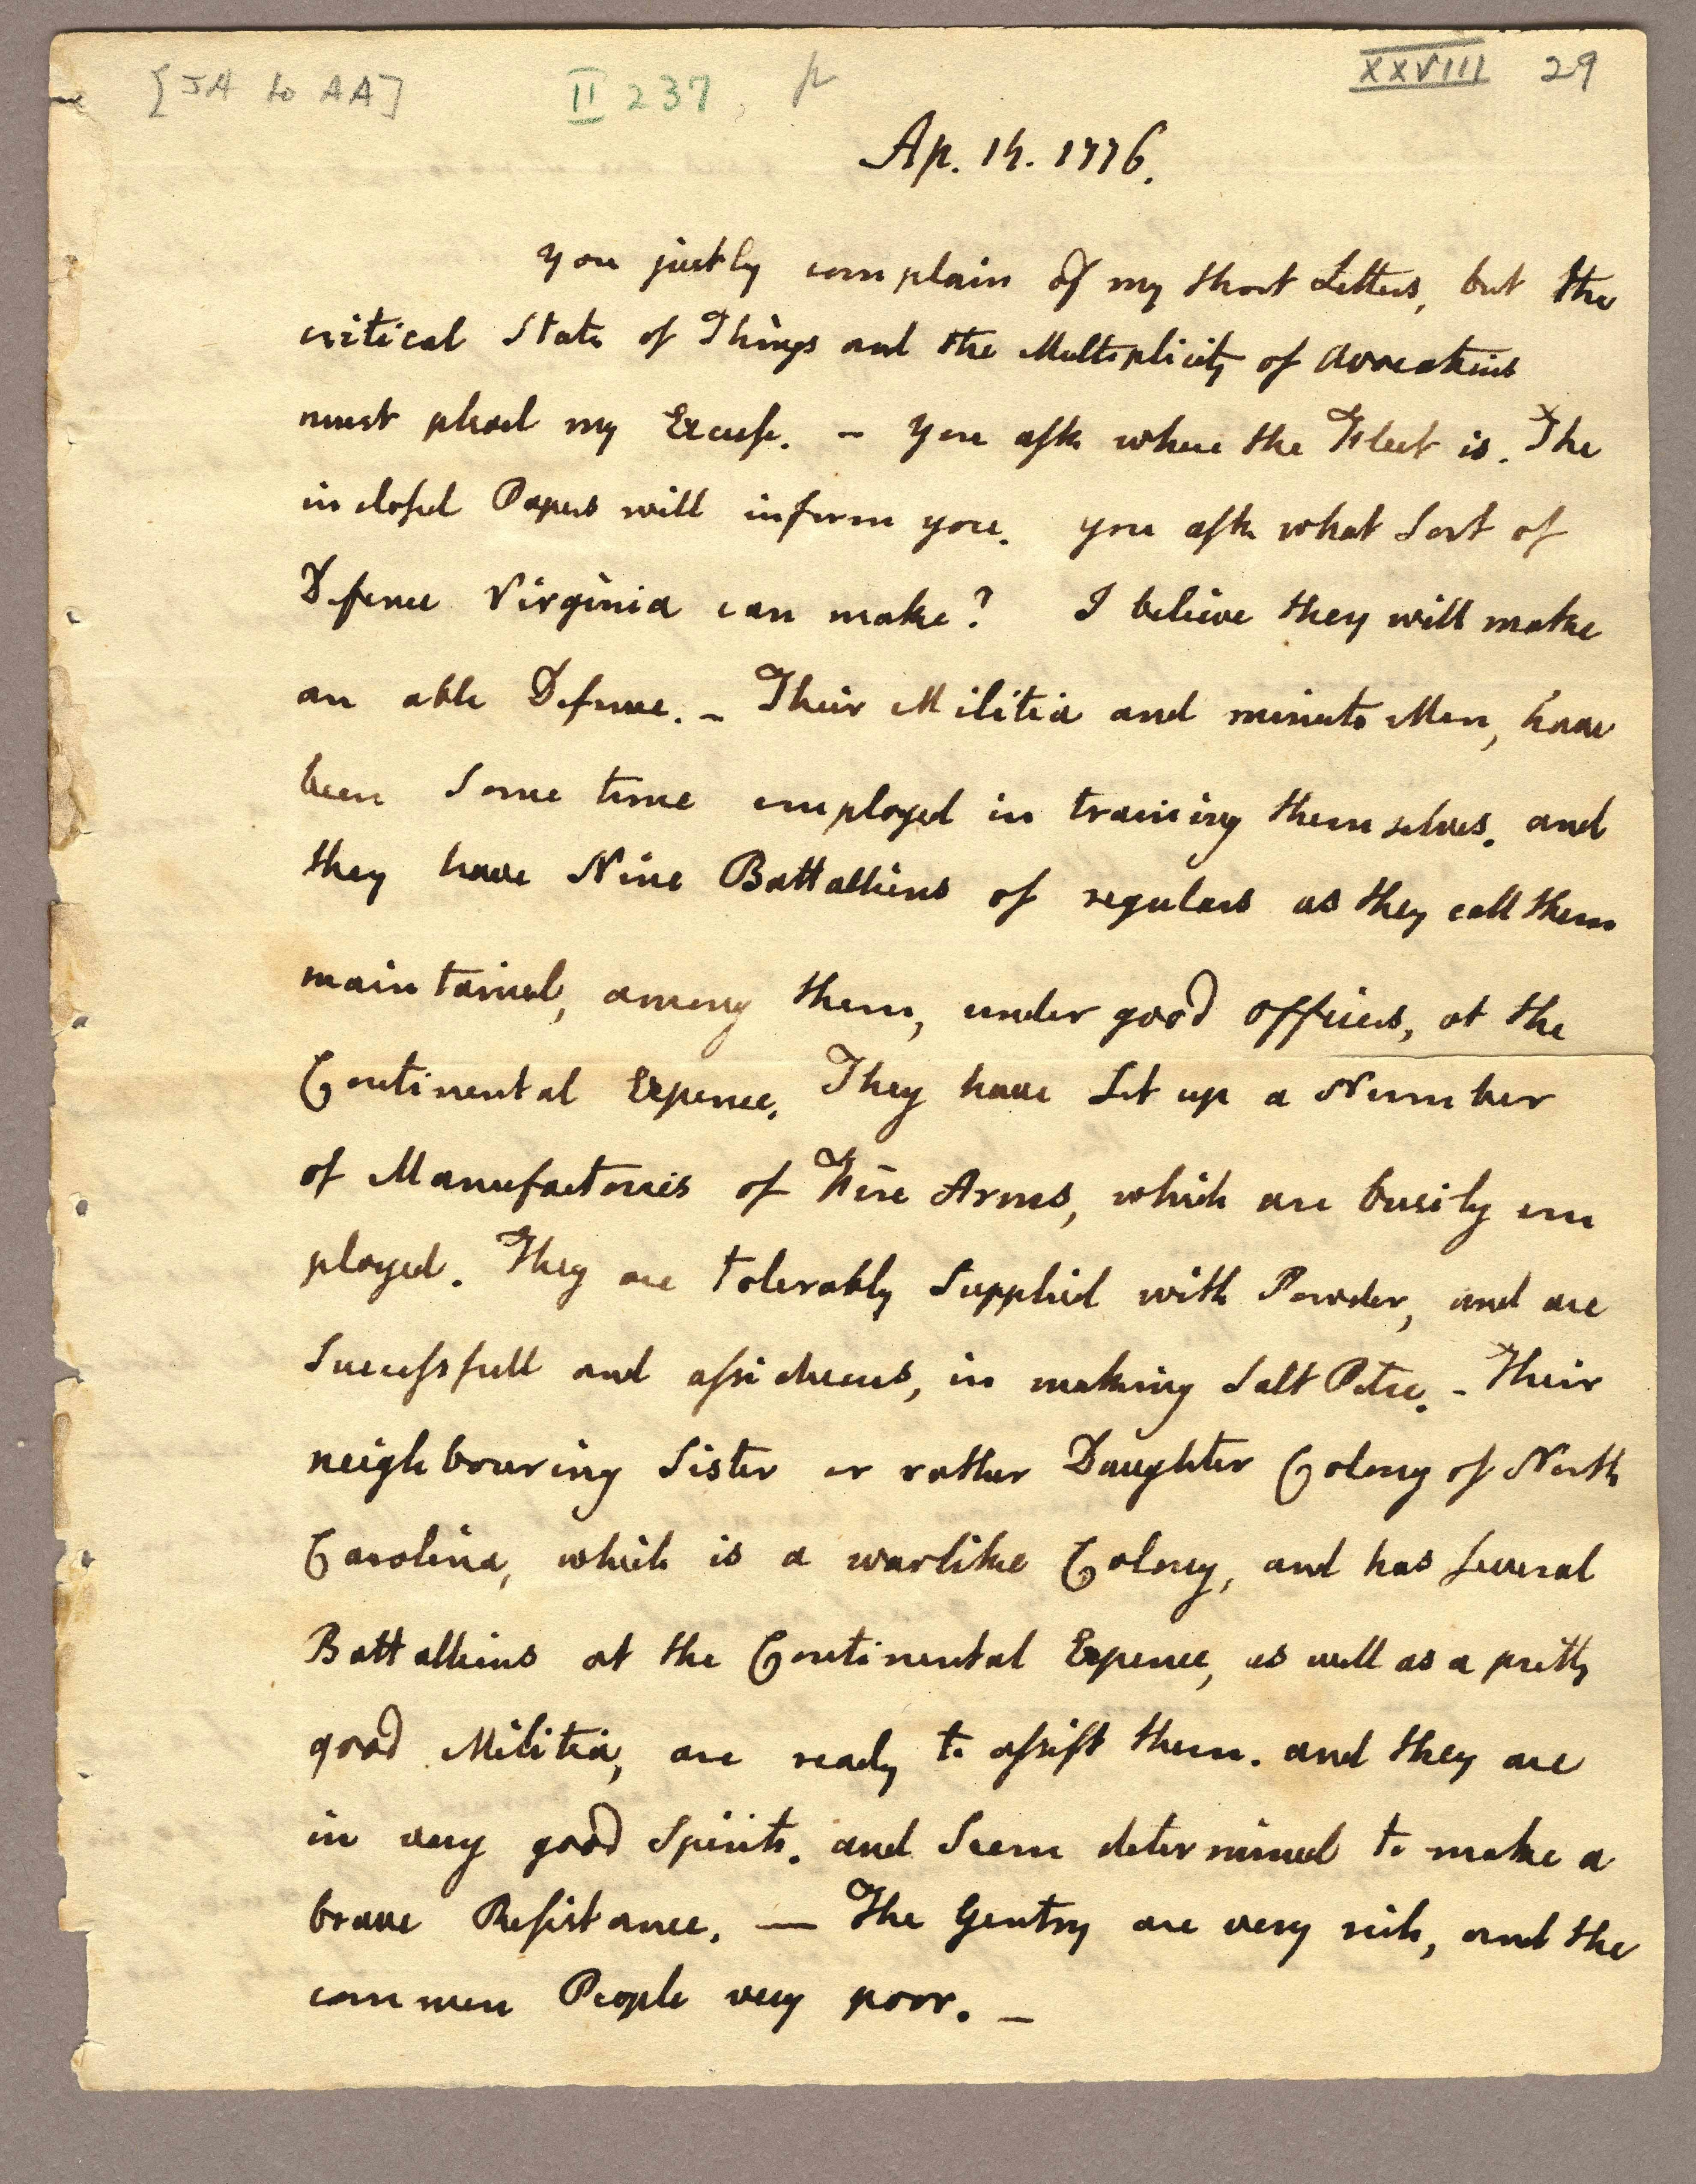 [JA to AA]
II 237
XXVIII 29
Ap. 14. 1776.
You justly complain of my short Letters, but the
critical State of Things and the Multiplicity of Avocations
must plead my Excuse. — You ask where the Fleet is. The
inclosed Papers will inform you. You ask what Sort of
Defence Virginia can make? I believe they will make
an able Defence. — Their Militia and minute Men, have
been Some time employed in training themselves. and
they have Nine Battallions of regulars as they call them
maintained, among them, under good officers, at the
Continental Expence. They have Set up a Number
of Manufactories of Fire Arms, which are busily em
ployed. They are tolerably Supplied with Powder, and are
Successfull and assiduous, in making Salt Petre. — Their
neighbouring Sister or rather Daughter Colony of North
Carolina, which is a warlike Colony, and has Several
Battallions at the Continental Expence, as well as a pretty
good Militia, are ready to assist them. and they are
in very good Spirits. and Seem determined to make a
brave Resistance. — The Gentry are very rich, and the
common People very poor. —